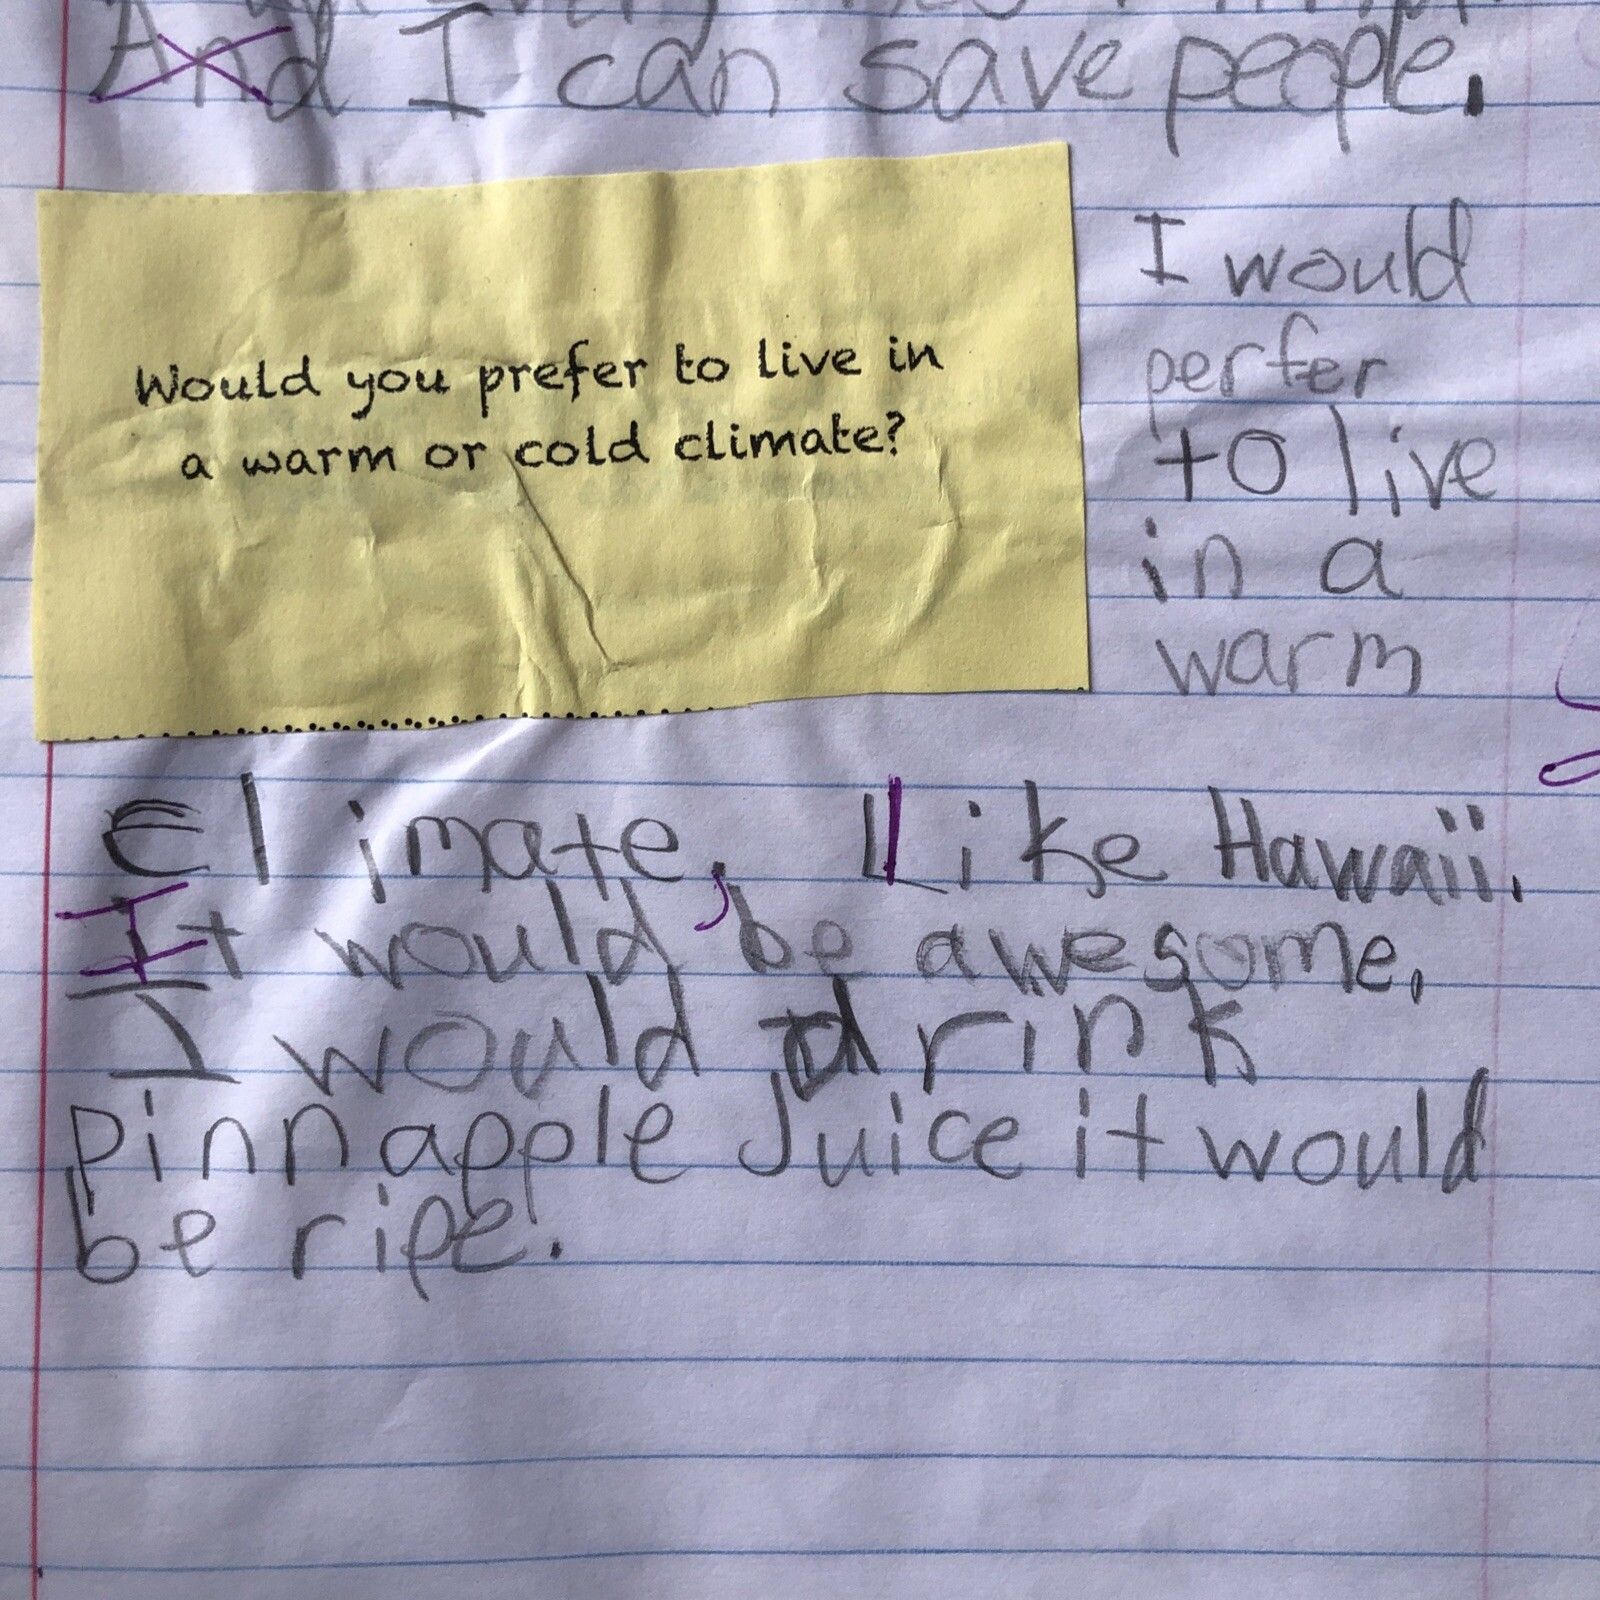 And I can save people.
Would you prefer to live in
a warm or cold climate?
I would
perfer
to live
in a
warm
Climate, like Hawaii.
It would be awesome.
I would drink
pinnapple Juice it would
be ripe.